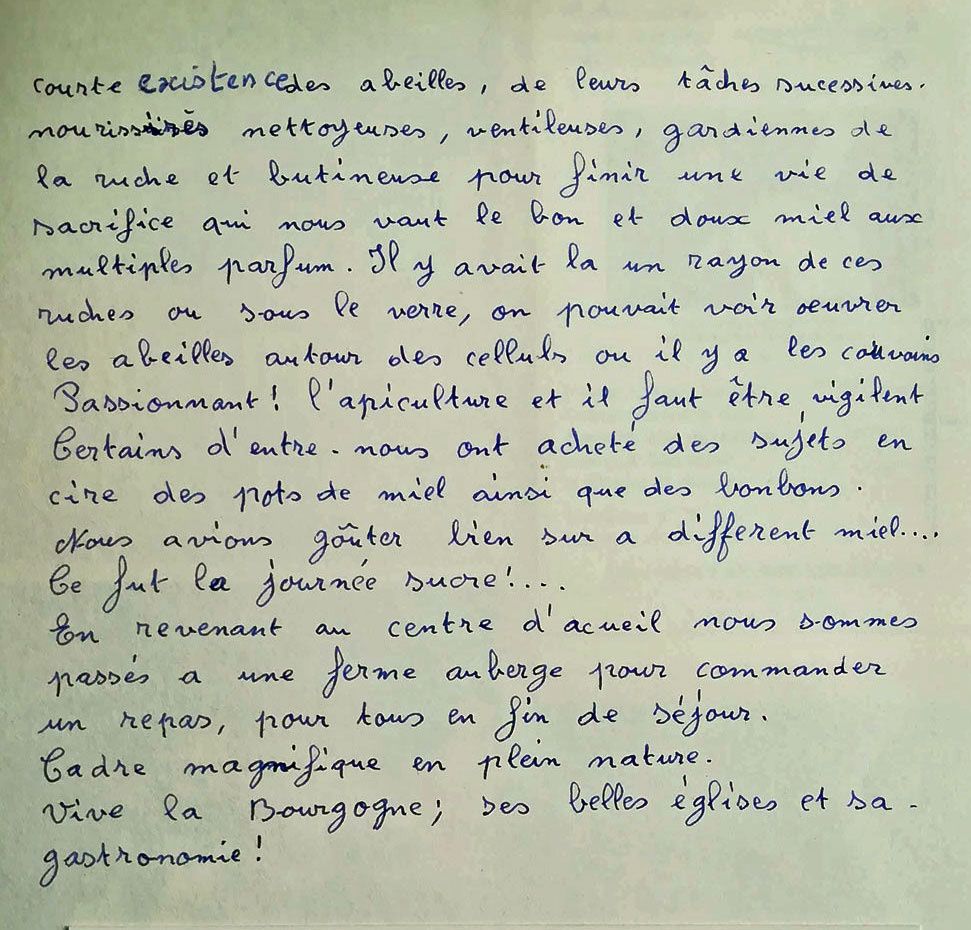 courte existence des abeilles, de leurs tâches sucessives.
nettoyeuses, ventileuses, gardiennes de
la ruche et butineuse pour finir une vie de
sacrifice qui nous vaut le bon et doux miel aux
multiples parfum. Il y avait la un rayon de ces
ruches ou sous le verre, on pouvait voir oeuvrer
les abeilles autour des celluls ou il y a les couvains
Passionnant! l'apiculture et il faut être vigilent
Certains d'entre-nous ont acheté des sujets en
cire des pots de miel ainsi que des bonbons.
Nous avions goûter bien sur a different miel....
Ce fut la journée sucre!...
En revenant au centre d'acueil nous sommes
passés a une ferme auberge pour commander
un repas, pour tous en fin de séjour.
Cadre magnifique en plein nature.
Vive la Bourgogne; ses belles églises et sa -
gastronomie!